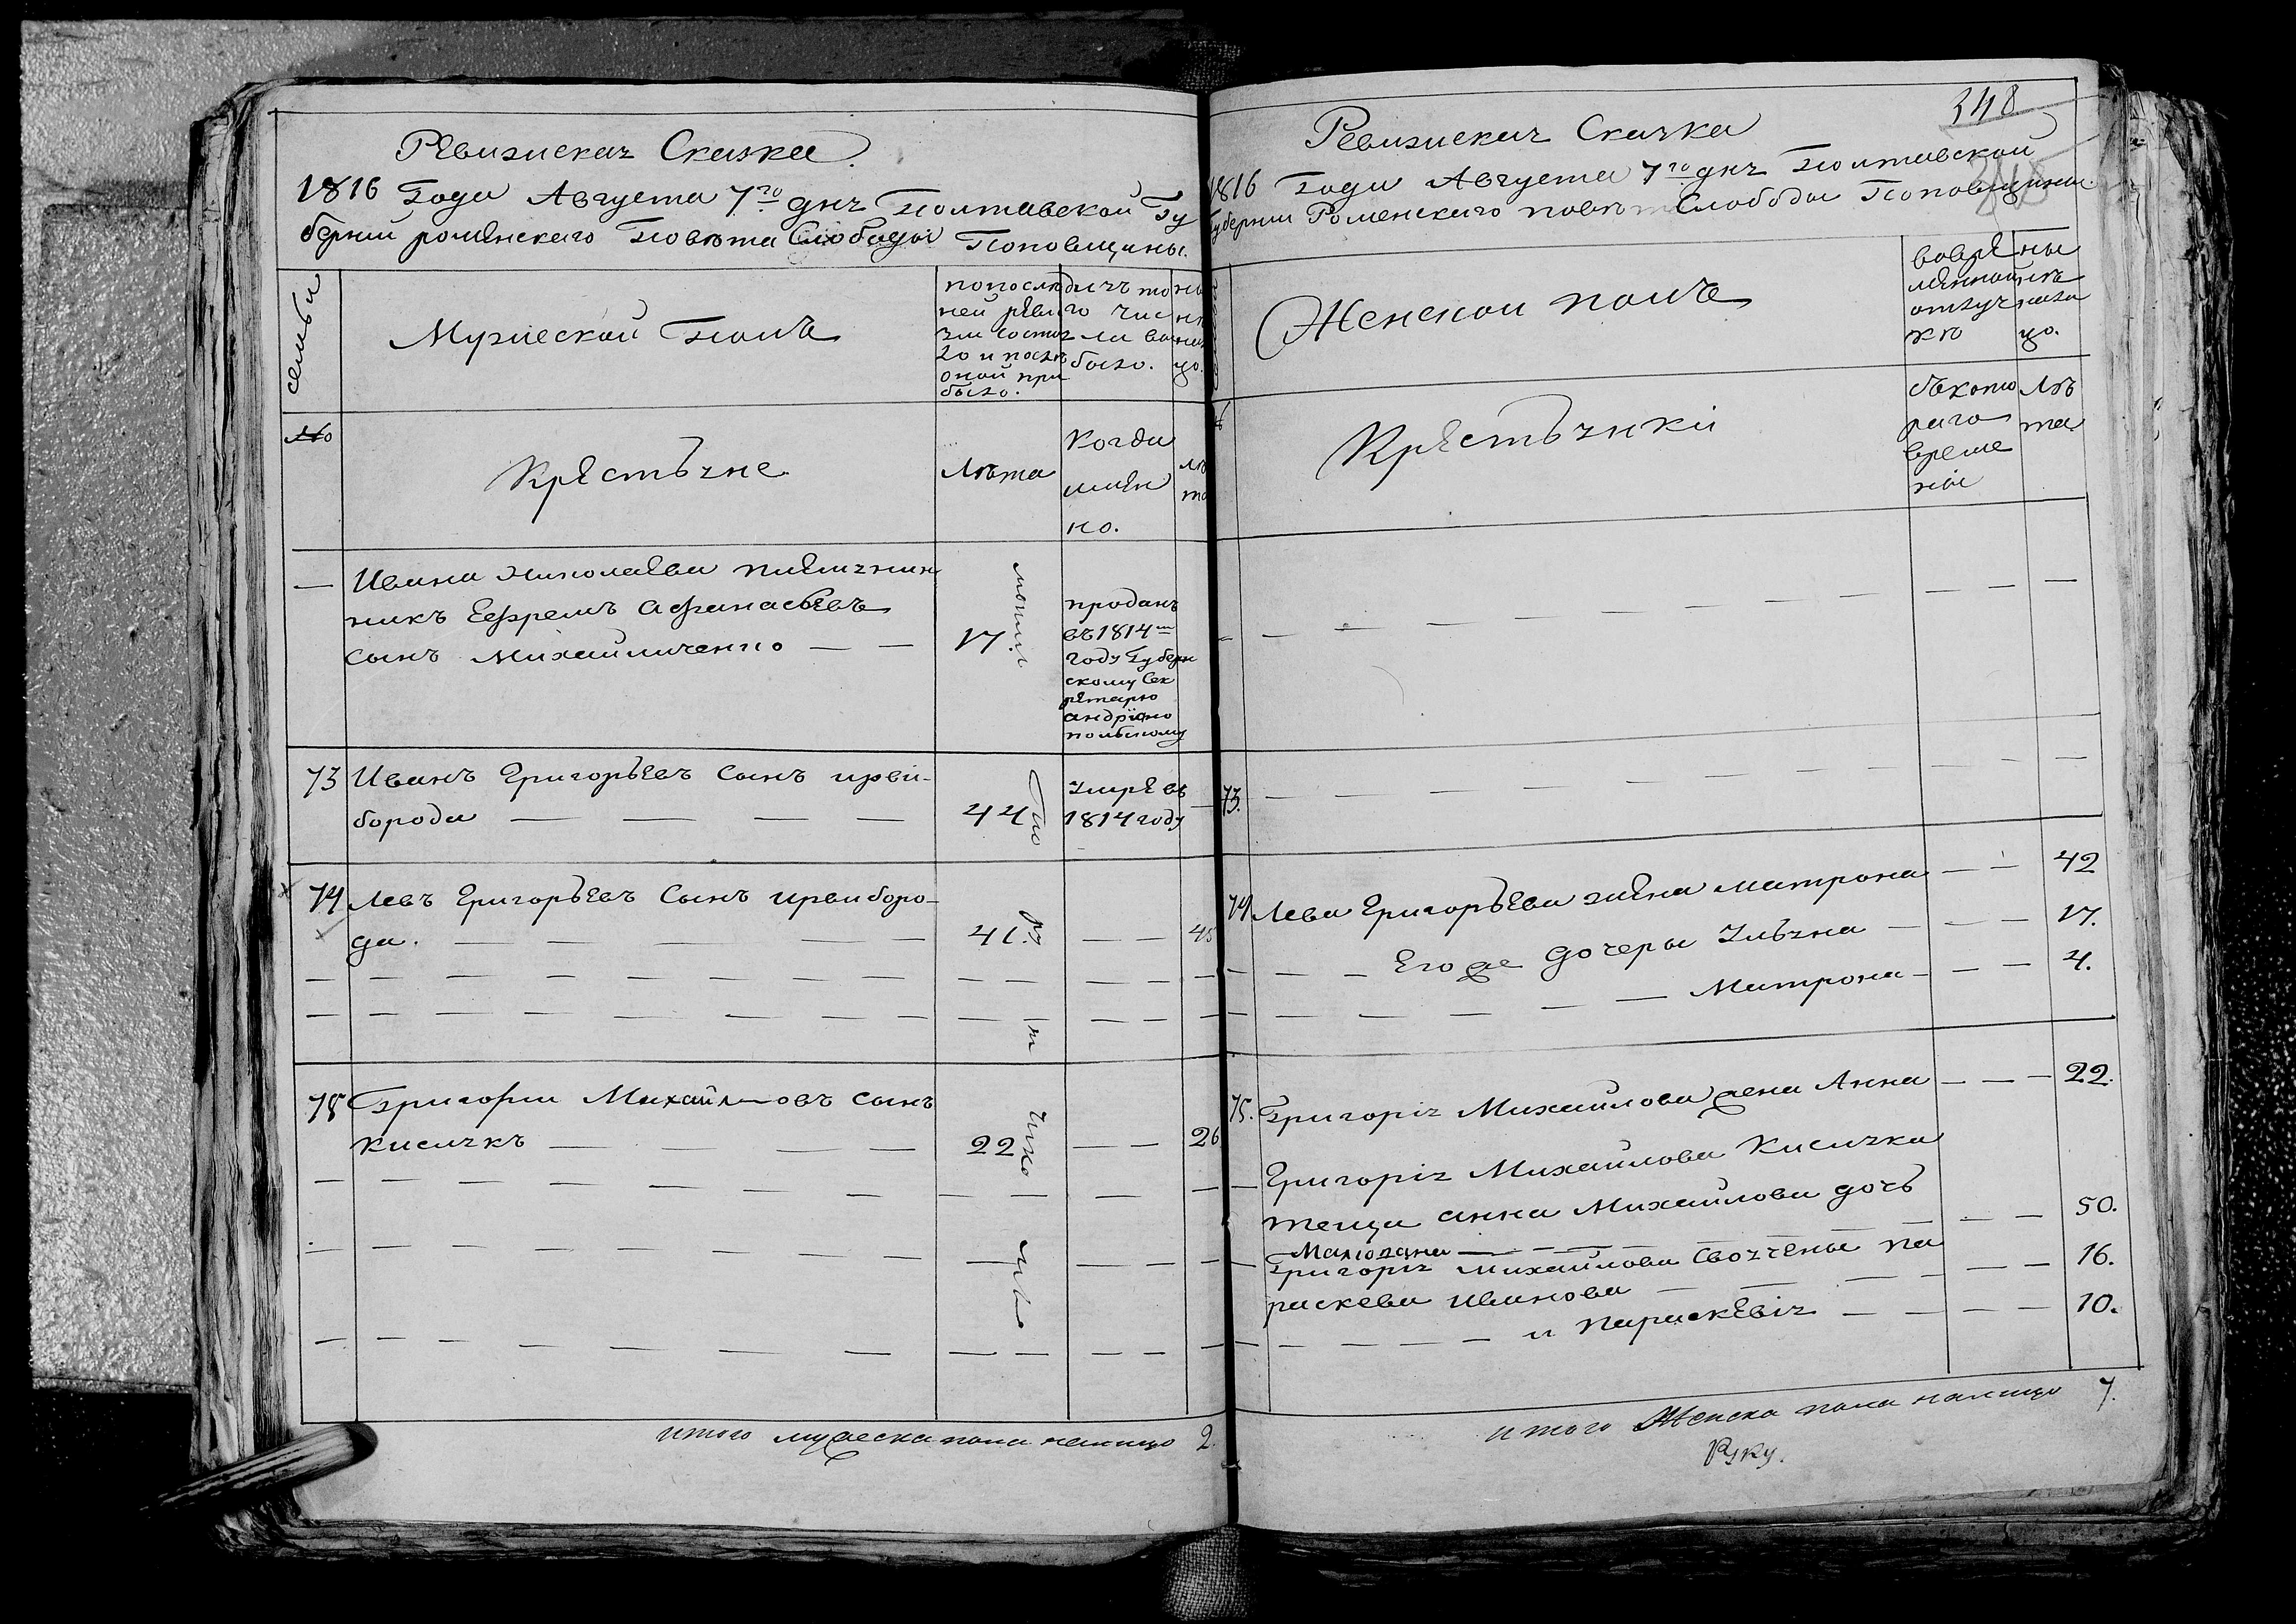 Ревизская Сказка.
1816 Года Августа 7го дня Полтавской Гу
берний роменскаго Повѣта Слободы Поповщины.
семьи
Мужеской Полъ
попослѣ
дней реви
зіи состоя
ло и послѣ
оной при
было.
изъ то
го чис
ла вы
было.
№
Крестьяне
Лѣта
Когда
имян
но.
лѣ
та
— Ивана Николаева племянни
никъ Ефремъ Афанасьевъ
сынъ Михайличенко — — 17.
проданъ
въ 1814м
году Губерн
скому Сек
ретарю
андріяно
польскому
73 Иванъ Григорьевъ Сынъ ирви-
борода — — — — 44
Умре въ
1814 году —
74 Левъ Григорьевъ Сынъ ирвиборо-
да. — — — — 41. — — 45
75 Григорий Михайловъ сынъ
Кисличкъ — — — — 22 — — 26
итого мужеска пола налицо 2.
348
Ревизская Сказка
1816 Года Августа 7го дня Полтавской
Губернии Роменскаго повѣта Слободы Поповщины.
Женской полъ
вовре
менной
отлуч
кѣ
ны
нѣ
нали
цо.
№
Крестьянки
съ кото
раго
време
ны
Лѣ
та
73. — — — — — —
74 Лева Григорьева жена матрона — — 42
Его же дочеры Ульяна — — — 17.
— — Матрона — — — 4.
75. Григорія Михайлова жена Анна — — — 22.
Григорія Михайлова Кисличка
теща анна Михайлова дочь
— — 50.
Григорія Михайлова Своячены па
раскева иванова — — — — — 16.
и параскевія — — — — 10.
итого Женска пола налицо 7.
Руку.